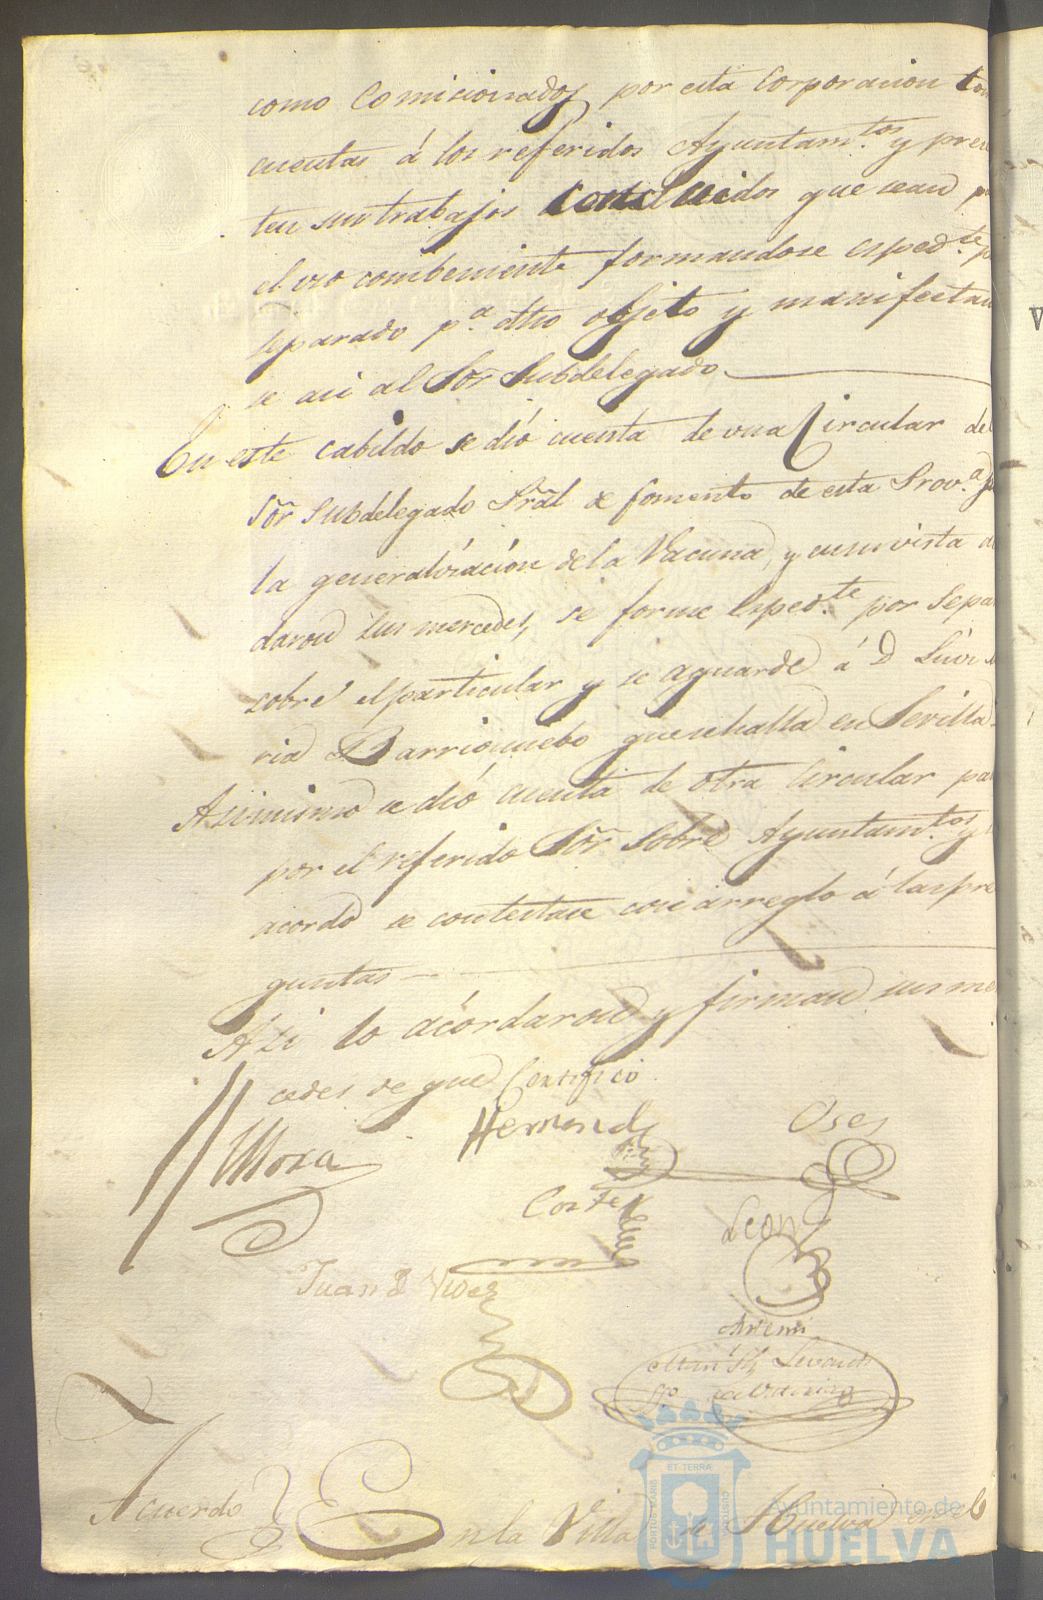 como Comicionados por esta Corporacion tom
cuentas á los referidos Ayuntam.tos y presen
ten sus trabajos concluidos que sean p
el uso combeniente formandose esped.te p
separado p.a dho objeto y manifestan
se asi al Sor Subdelegado
En este cabildo se dió cuenta de una Circular del
Sor Subdelegado Pral de fomento de esta Prov.a
la generalizácion de la Vacuna, y en su vista a
daron sus mercedes, se forme Esped.te por sepa
sobre el particular y se aguarde á D
ria Barrionuebo que se halla en Sevilla
Asi mismo se dió cuenta de otra Circular pa
por el referido Sor Sobre Ayuntam.tos y
acordó se contestase con arreglo á las pre
guntas
Asi lo acórdaron y firman sus me
cedes de que Certifico
Mora
Hernand
Oses
Cortes
Leon
Juan
Ante mi
Acuerdo
En la Villa de Huelva en el
PORTUS MARIS
ET TERRÆ
CUSTODIA
Ayuntamiento de
HUELVA